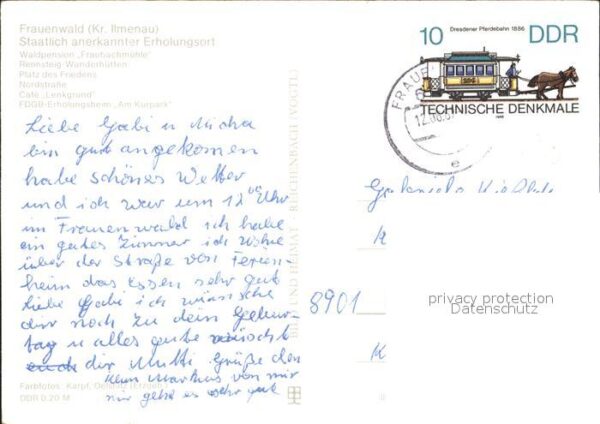 Frauenwald (Kr. Ilmenau)
Staatlich anerkannter Erholungsort
Waldpension „Fraubachmühle"
Rennsteig-Wanderhütten
Platz des Friedens
Nordstraße
Café „Lenkgrund"
FDGB-Erholungsheim „Am Kurpark"
Liebe Gabi u Micha
bin gut angekommen
habe schönes Wetter
und ich war um 12 00 Uhr
im Frauenwald ich habe
ein gutes Zimmer ich wohne
über der Straße von Ferien-
heim das Essen sehr gut
Liebe Gabi ich wünsche
dir noch zu dein Gebur-
tag u alles gute
dir Mutti Grüße den
klein Markus von mir
mir geht es sehr gut
Farbfotos: Karpf,
DDR 0,20 M
BILD UND HEIMAT REICHENBACH (VOGTL)
10 Dresdener Pferdebahn 1886 DDR
TECHNISCHE DENKMALE
1986
FRAUE
12.08.8
e
8901
privacy protection
Datenschutz